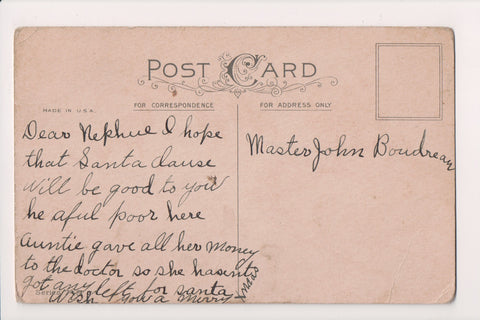 POST CARD
MADE IN U.S.A.
FOR CORRESPONDENCE
FOR ADDRESS ONLY
Dear Nephue I hope
that Santa clause
Will be good to you
he aful poor here
Auntie gave all her money
to the doctor so she hasint
got any left for santa
Wish you a Merry
Xmas
Series
Master John Boudreau